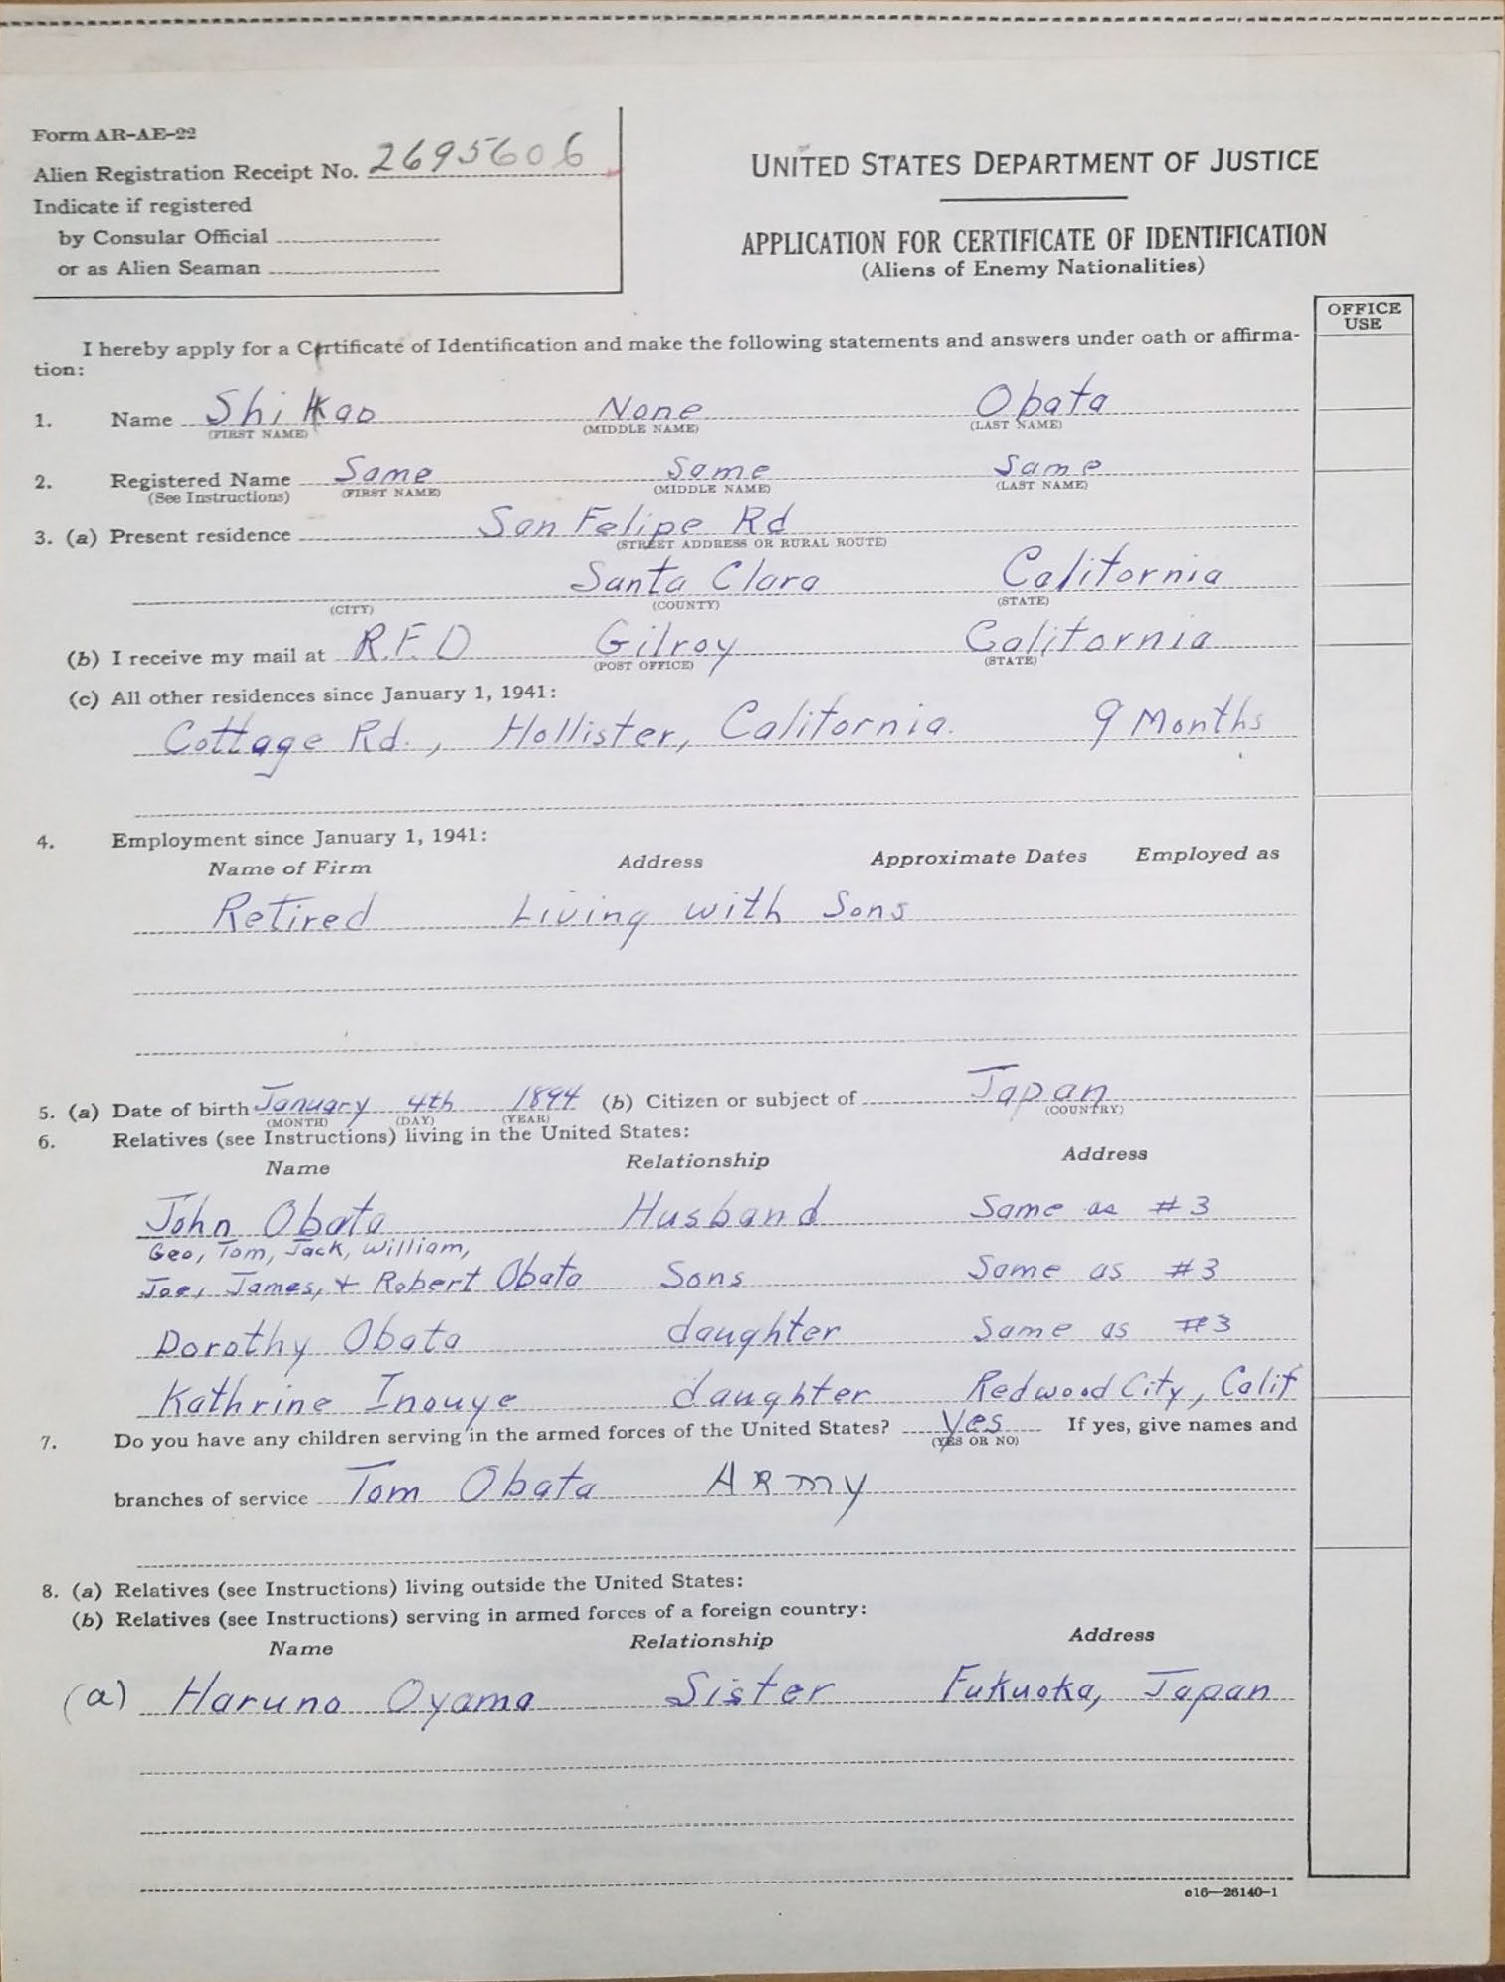 Form AR-AE-22
Alien Registration Receipt No. 2695606
Indicate if registered
by Consular Official
or as Alien Seaman
UNITED STATES DEPARTMENT OF JUSTICE
APPLICATION FOR CERTIFICATE OF IDENTIFICATION
(Aliens of Enemy Nationalities)
OFFICE
USE
I hereby apply for a Certificate of Identification and make the following statements and answers under oath or affirma-
tion:
1. Name Shikao None Obata
(FIRST NAME) (MIDDLE NAME) (LAST NAME)
2. Registered Name Same Same Same
(See Instructions) (FIRST NAME) (MIDDLE NAME) (LAST NAME)
3. (a) Present residence San Felipe Rd
(STREET ADDRESS OR RURAL ROUTE)
Santa Clara California
(CITY) (COUNTY) (STATE)
(b) I receive my mail at R.F.D Gilroy California
(POST OFFICE) (STATE)
(c) All other residences since January 1, 1941:
Cottage Rd., Hollister, California. 9 Months
4. Employment since January 1, 1941:
Name of Firm Address Approximate Dates Employed as
Retired Living with Sons
5. (a) Date of birth January 4th 1894 (b) Citizen or subject of Japan
(MONTH) (DAY) (YEAR) (COUNTRY)
6. Relatives (see Instructions) living in the United States:
Name Relationship Address
John Obata Husband Same as #3
Geo, Tom, Jack, William,
Joe, James, + Robert Obata Sons Same as #3
Dorothy Obata daughter Same as #3
Kathrine Inouye daughter Redwood City, Calif
7. Do you have any children serving in the armed forces of the United States? Yes If yes, give names and
(YES OR NO)
branches of service Tom Obata ARmy
8. (a) Relatives (see Instructions) living outside the United States:
(b) Relatives (see Instructions) serving in armed forces of a foreign country:
Name Relationship Address
(a) Haruno Oyama Sister Fukuoka, Japan
c16—26140-1